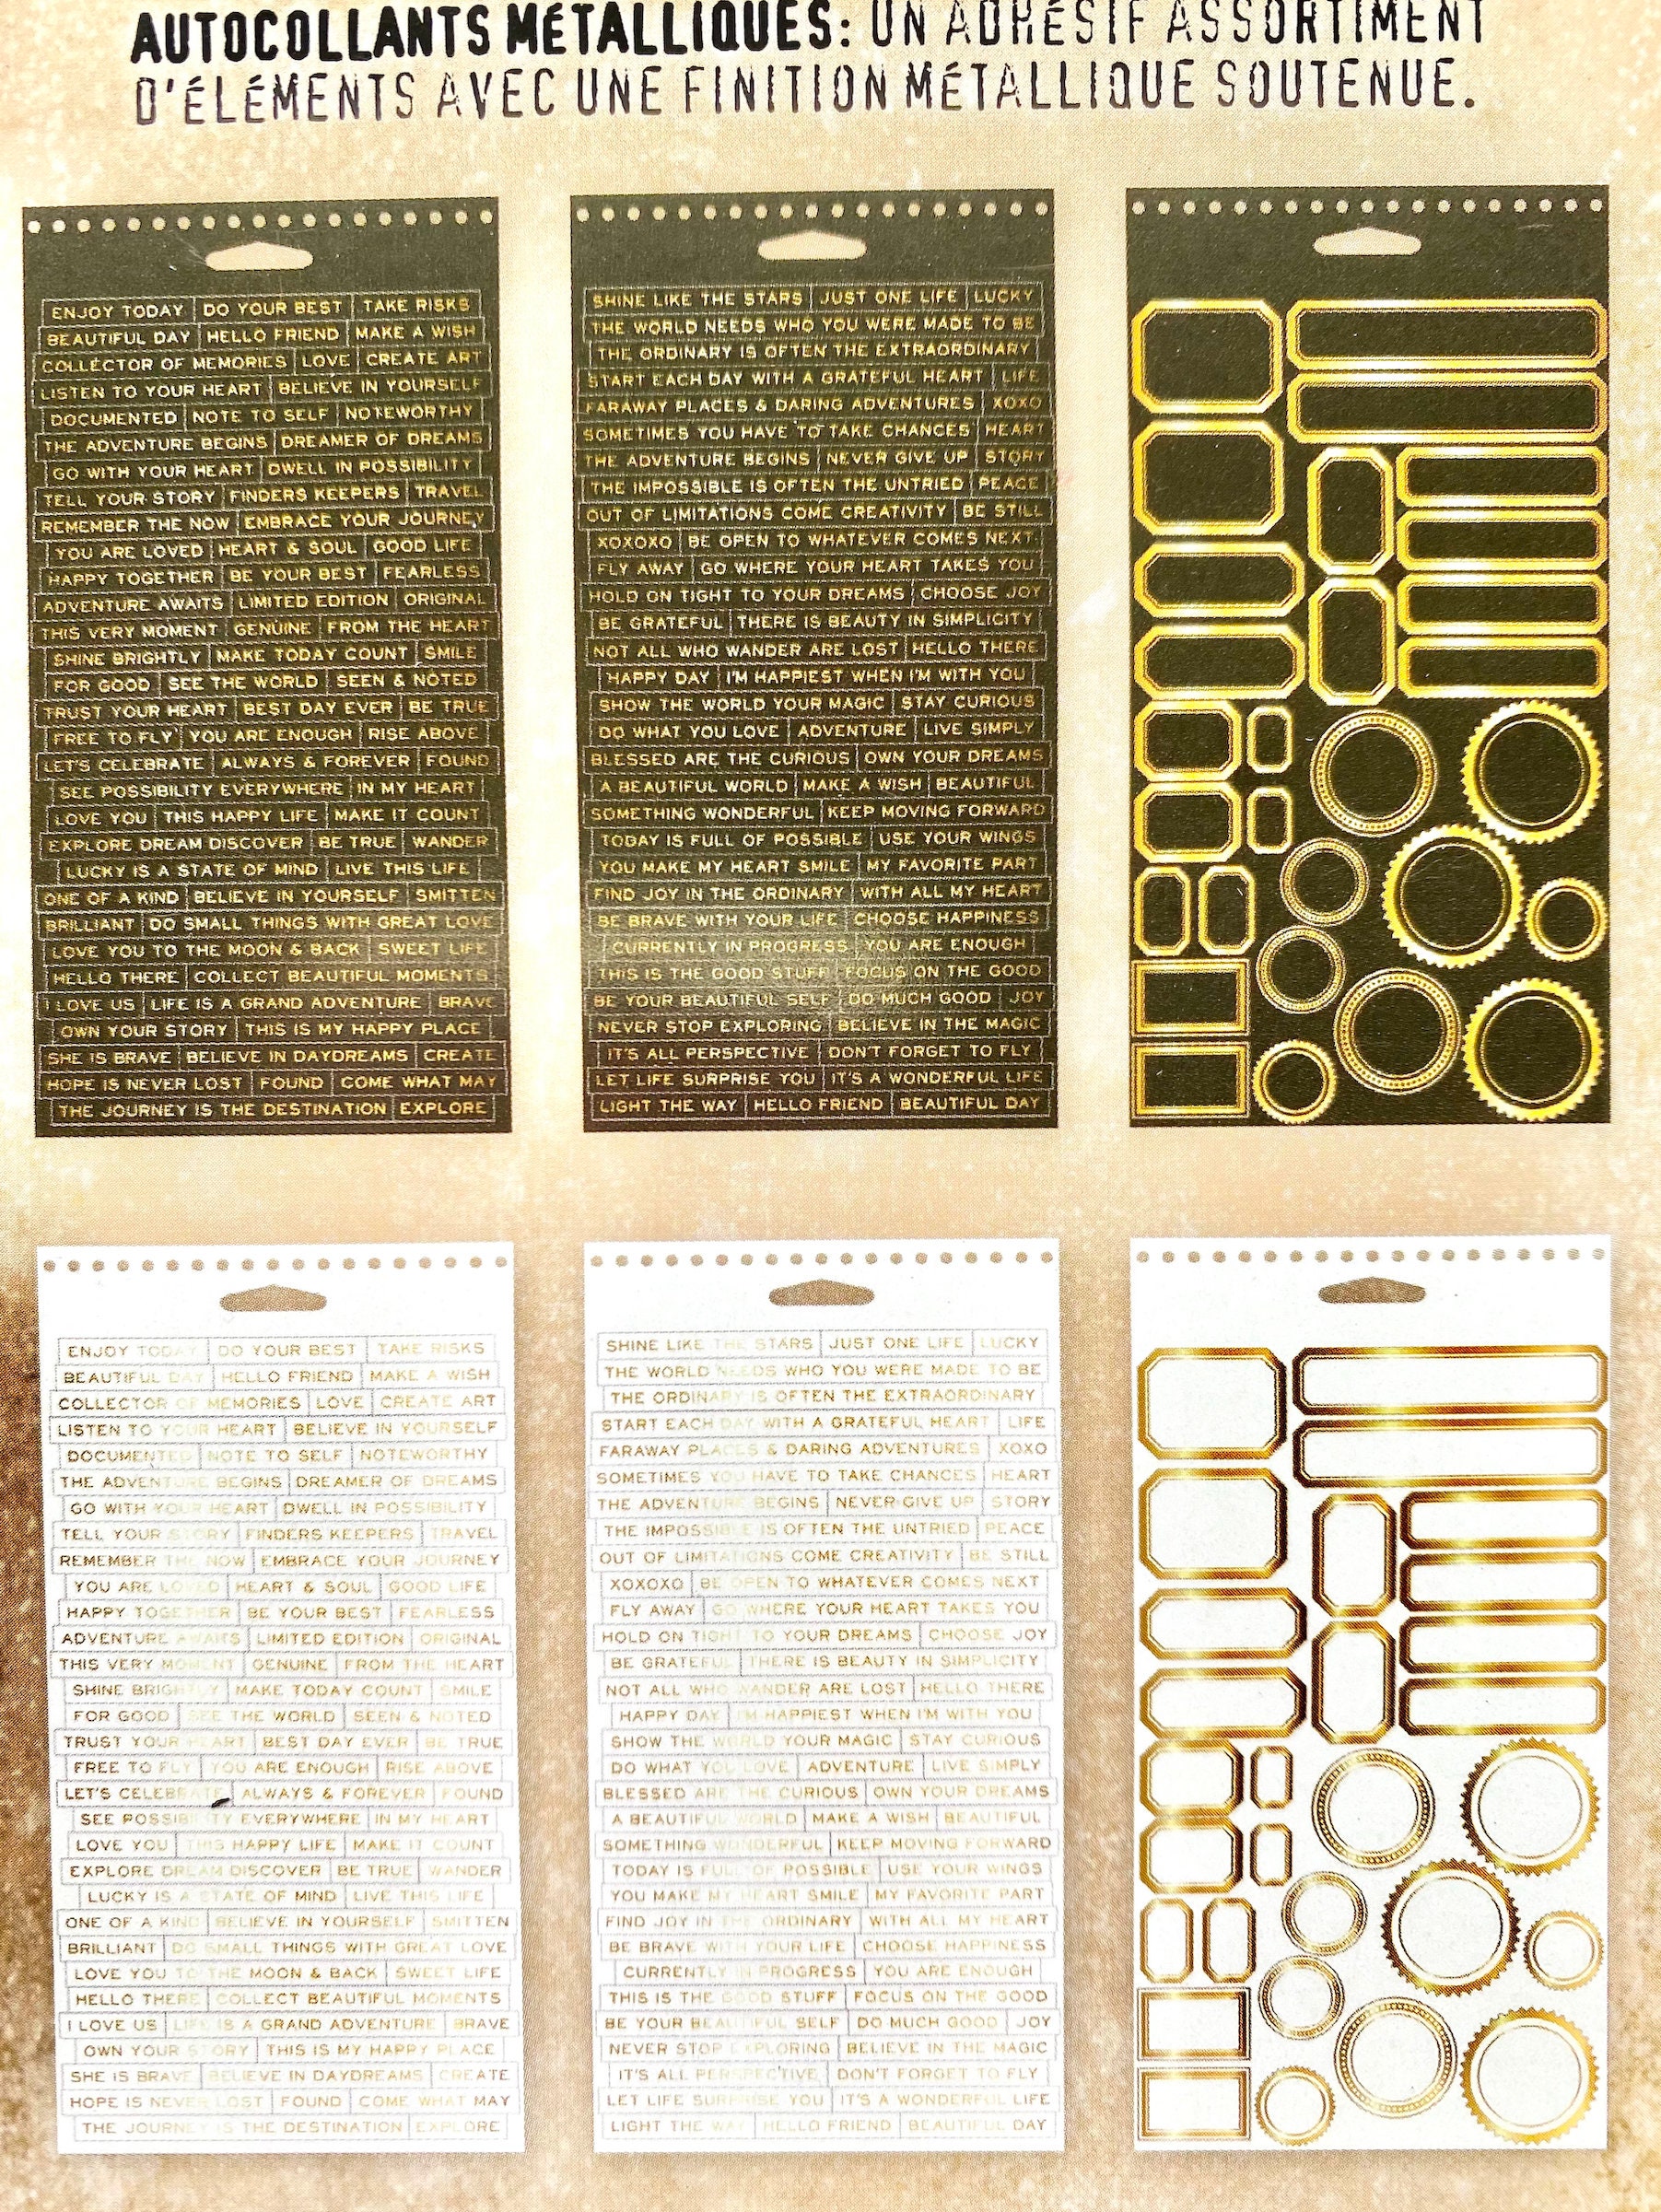 AUTOCOLLANTS MÉTALLIQUES: UN ADHÉSIF ASSORTIMENT
D'ÉLÉMENTS AVEC UNE FINITION MÉTALLIQUE SOUTENUE.
ENJOY TODAY DO YOUR BEST TAKE RISKS
BEAUTIFUL DAY HELLO FRIEND MAKE A WISH
COLLECTOR OF MEMORIES LOVE CREATE ART
LISTEN TO YOUR HEART BELIEVE IN YOURSELF
DOCUMENTED NOTE TO SELF NOTEWORTHY
THE ADVENTURE BEGINS DREAMER OF DREAMS
GO WITH YOUR HEART DWELL IN POSSIBILITY
TELL YOUR STORY FINDERS KEEPERS TRAVEL
REMEMBER THE NOW EMBRACE YOUR JOURNEY
YOU ARE LOVED HEART & SOUL GOOD LIFE
HAPPY TOGETHER BE YOUR BEST FEARLESS
ADVENTURE AWAITS LIMITED EDITION ORIGINAL
THIS VERY MOMENT GENUINE FROM THE HEART
SHINE BRIGHTLY MAKE TODAY COUNT SMILE
FOR GOOD SEE THE WORLD SEEN & NOTED
TRUST YOUR HEART BEST DAY EVER BE TRUE
FREE TO FLY YOU ARE ENOUGH RISE ABOVE
LET'S CELEBRATE ALWAYS & FOREVER FOUND
SEE POSSIBILITY EVERYWHERE IN MY HEART
LOVE YOU THIS HAPPY LIFE MAKE IT COUNT
EXPLORE DREAM DISCOVER BE TRUE WANDER
LUCKY IS A STATE OF MIND LIVE THIS LIFE
ONE OF A KIND BELIEVE IN YOURSELF SMITTEN
BRILLIANT DO SMALL THINGS WITH GREAT LOVE
LOVE YOU TO THE MOON & BACK SWEET LIFE
HELLO THERE COLLECT BEAUTIFUL MOMENTS
I LOVE US LIFE IS A GRAND ADVENTURE BRAVE
OWN YOUR STORY THIS IS MY HAPPY PLACE
SHE IS BRAVE BELIEVE IN DAYDREAMS CREATE
HOPE IS NEVER LOST FOUND COME WHAT MAY
THE JOURNEY IS THE DESTINATION EXPLORE
SHINE LIKE THE STARS JUST ONE LIFE LUCKY
THE WORLD NEEDS WHO YOU WERE MADE TO BE
THE ORDINARY IS OFTEN THE EXTRAORDINARY
START EACH DAY WITH A GRATEFUL HEART LIFE
FARAWAY PLACES & DARING ADVENTURES XOXO
SOMETIMES YOU HAVE TO TAKE CHANCES HEART
THE ADVENTURE BEGINS NEVER GIVE UP STORY
THE IMPOSSIBLE IS OFTEN THE UNTRIED PEACE
OUT OF LIMITATIONS COME CREATIVITY BE STILL
XOXOXO BE OPEN TO WHATEVER COMES NEXT
FLY AWAY GO WHERE YOUR HEART TAKES YOU
HOLD ON TIGHT TO YOUR DREAMS CHOOSE JOY
BE GRATEFUL THERE IS BEAUTY IN SIMPLICITY
NOT ALL WHO WANDER ARE LOST HELLO THERE
HAPPY DAY I'M HAPPIEST WHEN I'M WITH YOU
SHOW THE WORLD YOUR MAGIC STAY CURIOUS
DO WHAT YOU LOVE ADVENTURE LIVE SIMPLY
BLESSED ARE THE CURIOUS OWN YOUR DREAMS
A BEAUTIFUL WORLD MAKE A WISH BEAUTIFUL
SOMETHING WONDERFUL KEEP MOVING FORWARD
TODAY IS FULL OF POSSIBLE USE YOUR WINGS
YOU MAKE MY HEART SMILE MY FAVORITE PART
FIND JOY IN THE ORDINARY WITH ALL MY HEART
BE BRAVE WITH YOUR LIFE CHOOSE HAPPINESS
CURRENTLY IN PROGRESS YOU ARE ENOUGH
THIS IS THE GOOD STUFF FOCUS ON THE GOOD
BE YOUR BEAUTIFUL SELF DO MUCH GOOD JOY
NEVER STOP EXPLORING BELIEVE IN THE MAGIC
IT'S ALL PERSPECTIVE DON'T FORGET TO FLY
LET LIFE SURPRISE YOU IT'S A WONDERFUL LIFE
LIGHT THE WAY HELLO FRIEND BEAUTIFUL DAY
ENJOY TODAY DO YOUR BEST TAKE RISKS
BEAUTIFUL DAY HELLO FRIEND MAKE A WISH
COLLECTOR OF MEMORIES LOVE CREATE ART
LISTEN TO YOUR HEART BELIEVE IN YOURSELF
DOCUMENTED NOTE TO SELF NOTEWORTHY
THE ADVENTURE BEGINS DREAMER OF DREAMS
GO WITH YOUR HEART DWELL IN POSSIBILITY
TELL YOUR STORY FINDERS KEEPERS TRAVEL
REMEMBER THE NOW EMBRACE YOUR JOURNEY
YOU ARE LOVED HEART & SOUL GOOD LIFE
HAPPY TOGETHER BE YOUR BEST FEARLESS
ADVENTURE AWAITS LIMITED EDITION ORIGINAL
THIS VERY MOMENT GENUINE FROM THE HEART
SHINE BRIGHTLY MAKE TODAY COUNT SMILE
FOR GOOD SEE THE WORLD SEEN & NOTED
TRUST YOUR HEART BEST DAY EVER BE TRUE
FREE TO FLY YOU ARE ENOUGH RISE ABOVE
LET'S CELEBRATE ALWAYS & FOREVER FOUND
SEE POSSIBILITY EVERYWHERE IN MY HEART
LOVE YOU THIS HAPPY LIFE MAKE IT COUNT
EXPLORE DREAM DISCOVER BE TRUE WANDER
LUCKY IS A STATE OF MIND LIVE THIS LIFE
ONE OF A KIND BELIEVE IN YOURSELF SMITTEN
BRILLIANT DO SMALL THINGS WITH GREAT LOVE
LOVE YOU TO THE MOON & BACK SWEET LIFE
HELLO THERE COLLECT BEAUTIFUL MOMENTS
I LOVE US LIFE IS A GRAND ADVENTURE BRAVE
OWN YOUR STORY THIS IS MY HAPPY PLACE
SHE IS BRAVE BELIEVE IN DAYDREAMS CREATE
HOPE IS NEVER LOST FOUND COME WHAT MAY
THE JOURNEY IS THE DESTINATION EXPLORE
SHINE LIKE THE STARS JUST ONE LIFE LUCKY
THE WORLD NEEDS WHO YOU WERE MADE TO BE
THE ORDINARY IS OFTEN THE EXTRAORDINARY
START EACH DAY WITH A GRATEFUL HEART LIFE
FARAWAY PLACES & DARING ADVENTURES XOXO
SOMETIMES YOU HAVE TO TAKE CHANCES HEART
THE ADVENTURE BEGINS NEVER GIVE UP STORY
THE IMPOSSIBLE IS OFTEN THE UNTRIED PEACE
OUT OF LIMITATIONS COME CREATIVITY BE STILL
XOXOXO BE OPEN TO WHATEVER COMES NEXT
FLY AWAY GO WHERE YOUR HEART TAKES YOU
HOLD ON TIGHT TO YOUR DREAMS CHOOSE JOY
BE GRATEFUL THERE IS BEAUTY IN SIMPLICITY
NOT ALL WHO WANDER ARE LOST HELLO THERE
HAPPY DAY I'M HAPPIEST WHEN I'M WITH YOU
SHOW THE WORLD YOUR MAGIC STAY CURIOUS
DO WHAT YOU LOVE ADVENTURE LIVE SIMPLY
BLESSED ARE THE CURIOUS OWN YOUR DREAMS
A BEAUTIFUL WORLD MAKE A WISH BEAUTIFUL
SOMETHING WONDERFUL KEEP MOVING FORWARD
TODAY IS FULL OF POSSIBLE USE YOUR WINGS
YOU MAKE MY HEART SMILE MY FAVORITE PART
FIND JOY IN THE ORDINARY WITH ALL MY HEART
BE BRAVE WITH YOUR LIFE CHOOSE HAPPINESS
CURRENTLY IN PROGRESS YOU ARE ENOUGH
THIS IS THE GOOD STUFF FOCUS ON THE GOOD
BE YOUR BEAUTIFUL SELF DO MUCH GOOD JOY
NEVER STOP EXPLORING BELIEVE IN THE MAGIC
IT'S ALL PERSPECTIVE DON'T FORGET TO FLY
LET LIFE SURPRISE YOU IT'S A WONDERFUL LIFE
LIGHT THE WAY HELLO FRIEND BEAUTIFUL DAY